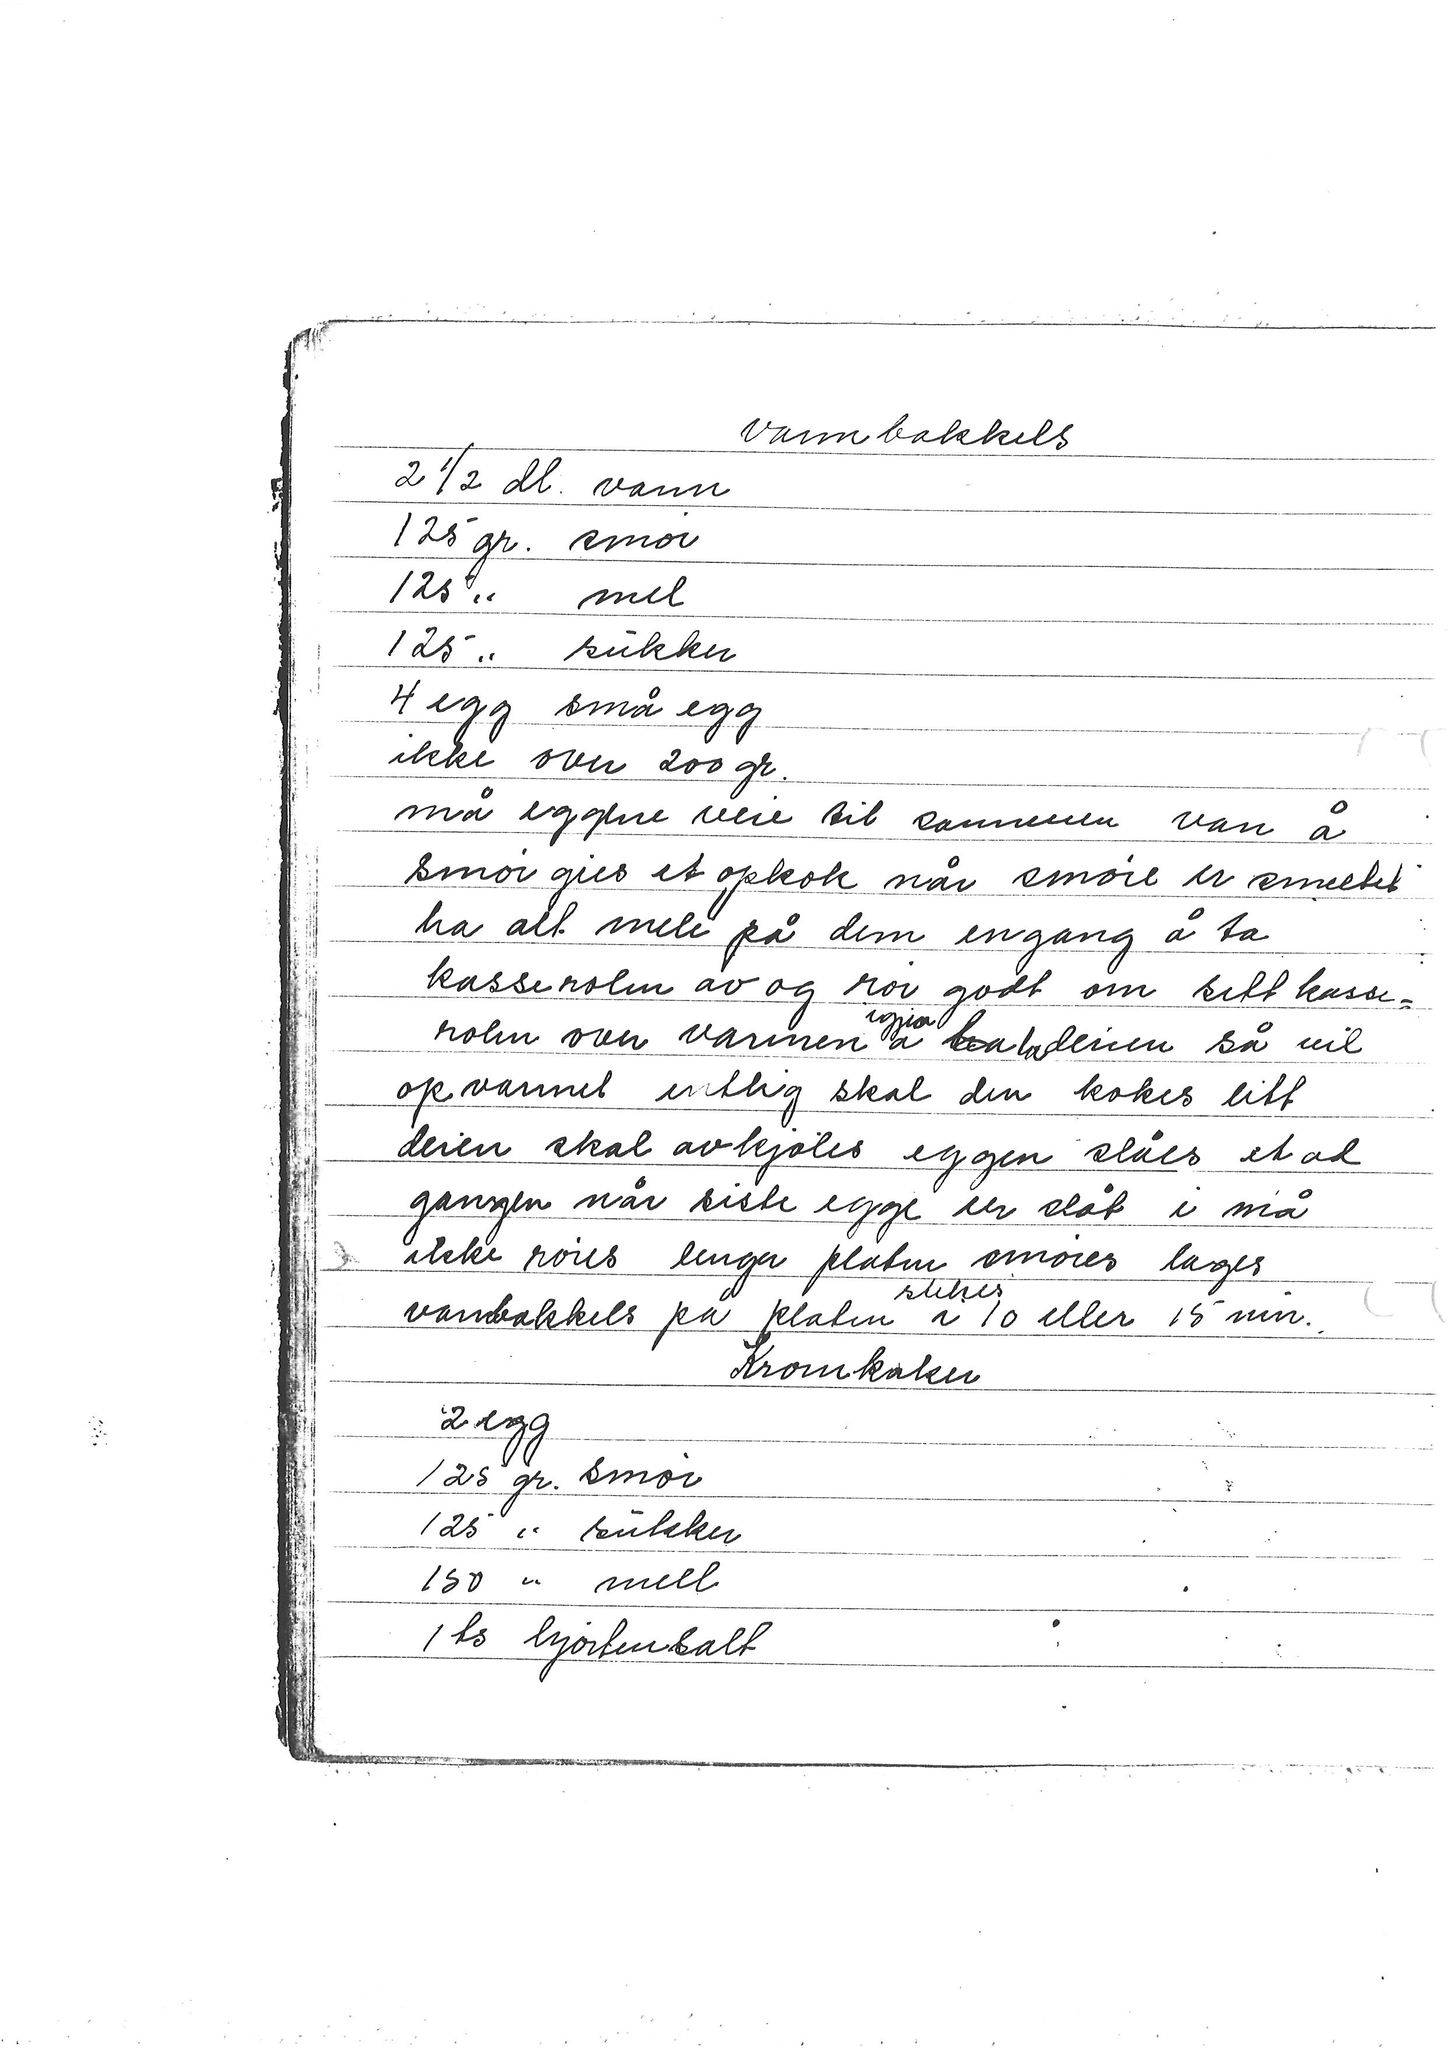 vannbakkels
2 1/2 dl. vann
125 gr. smør
125 " mel
125 " sukker
4 egg små egg
ikke over 200 gr.
må eggene veie til sammen van å
smør gies et opkok når smøre er smeltet
ha alt mele på dem engang å ta
kasserolen av og rør godt om sett kasse=
rolen over varmen igjen å la deien så vil
opvarmet entlig skal den kokes litt
deien skal avkjøles eggen slåes et ad
gangen når siste egge er slåt i må
ikke røres lenger platen smøres lages
vanbakkels på platen stekes i 10 eller 15 min.
Kromkaker
2 egg
125 gr. smør
125 " sukker
150 " mell
1 ts hjortensalt